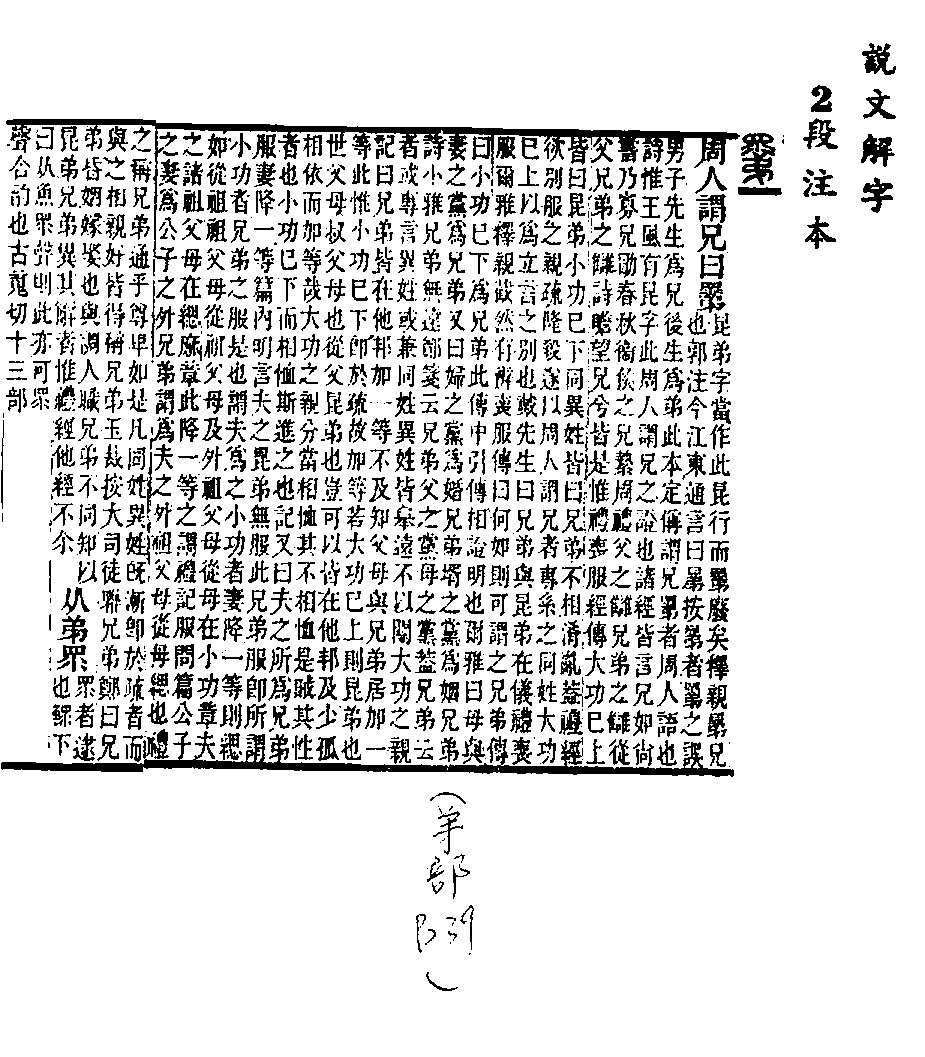 說文解字
2段注本
周人謂兄曰𥊽
昆弟字當作此昆行而𥊽廢矣釋親𥊽兄
也郭注今江東通言曰𥊽按𥊽者𥊽之誤
男子先生爲兄後生爲弟此本定偁謂兄𥊽者周人語也
詩惟王風有昆字此周人謂兄之證也諸經皆言兄如尚
書乃寡兄勖春秋衞侯之兄縶周禮父之讎兄弟之讎從
父兄弟之讎詩瞻望兄兮皆是惟禮喪服經傳大功已上
皆曰昆弟小功已下同異姓皆曰兄弟不相淆亂蓋禮經
欲別服之親疏隆殺遂以周人謂兄者專系之同姓大功
已上以爲立言之別也故先生曰兄弟與昆弟在儀禮喪
服爾雅釋親截然有辨喪服傳曰何如則可謂之兄弟傳
曰小功已下爲兄弟此傳中引傳相證明也爾雅曰母與
妻之黨爲兄弟又曰婦之黨爲婚兄弟壻之黨爲姻兄弟
詩小雅兄弟無遠鄭箋云兄弟父之黨母之黨蓋兄弟云
者或專言異姓或兼同姓異姓皆㫄遠不以關大功之親
記曰兄弟皆在他邦加一等不及知父母與兄弟居加一
等此惟小功已下卽於疏故加等若大功已上則昆弟也
世父母叔父母也從父昆弟也豈可以皆在他邦及少孤
相依而加等哉大功之親分當相恤其不相恤是賊其性
者也小功已下而相恤斯進之也記又曰夫之所爲兄弟
服妻降一等篇內明言夫之昆弟無服此兄弟服卽所謂
小功者兄弟之服是也謂夫爲之小功者妻降一等則緦
如從祖祖父母從祖父母及外祖父母從母在小功章夫
之諸祖父母在緦麻章此降一等之謂禮記服問篇公子
之妻爲公子之外兄弟謂爲夫之外祖父母從母緦也禮
之稱兄弟通乎尊卑如是凡同姓異姓旣漸卽於疏者而
與之相親好皆得稱兄弟玉裁按大司徒聯兄弟鄭曰兄
弟皆婣嫁娶也與調人職兄弟不同知以
昆弟兄弟異其解者惟禮經他經不尒
从弟眔
眔者逮
也鰥下
曰从魚眔聲則此亦可眔
聲合韵也古䰟切十三部
(弟部
P39
)